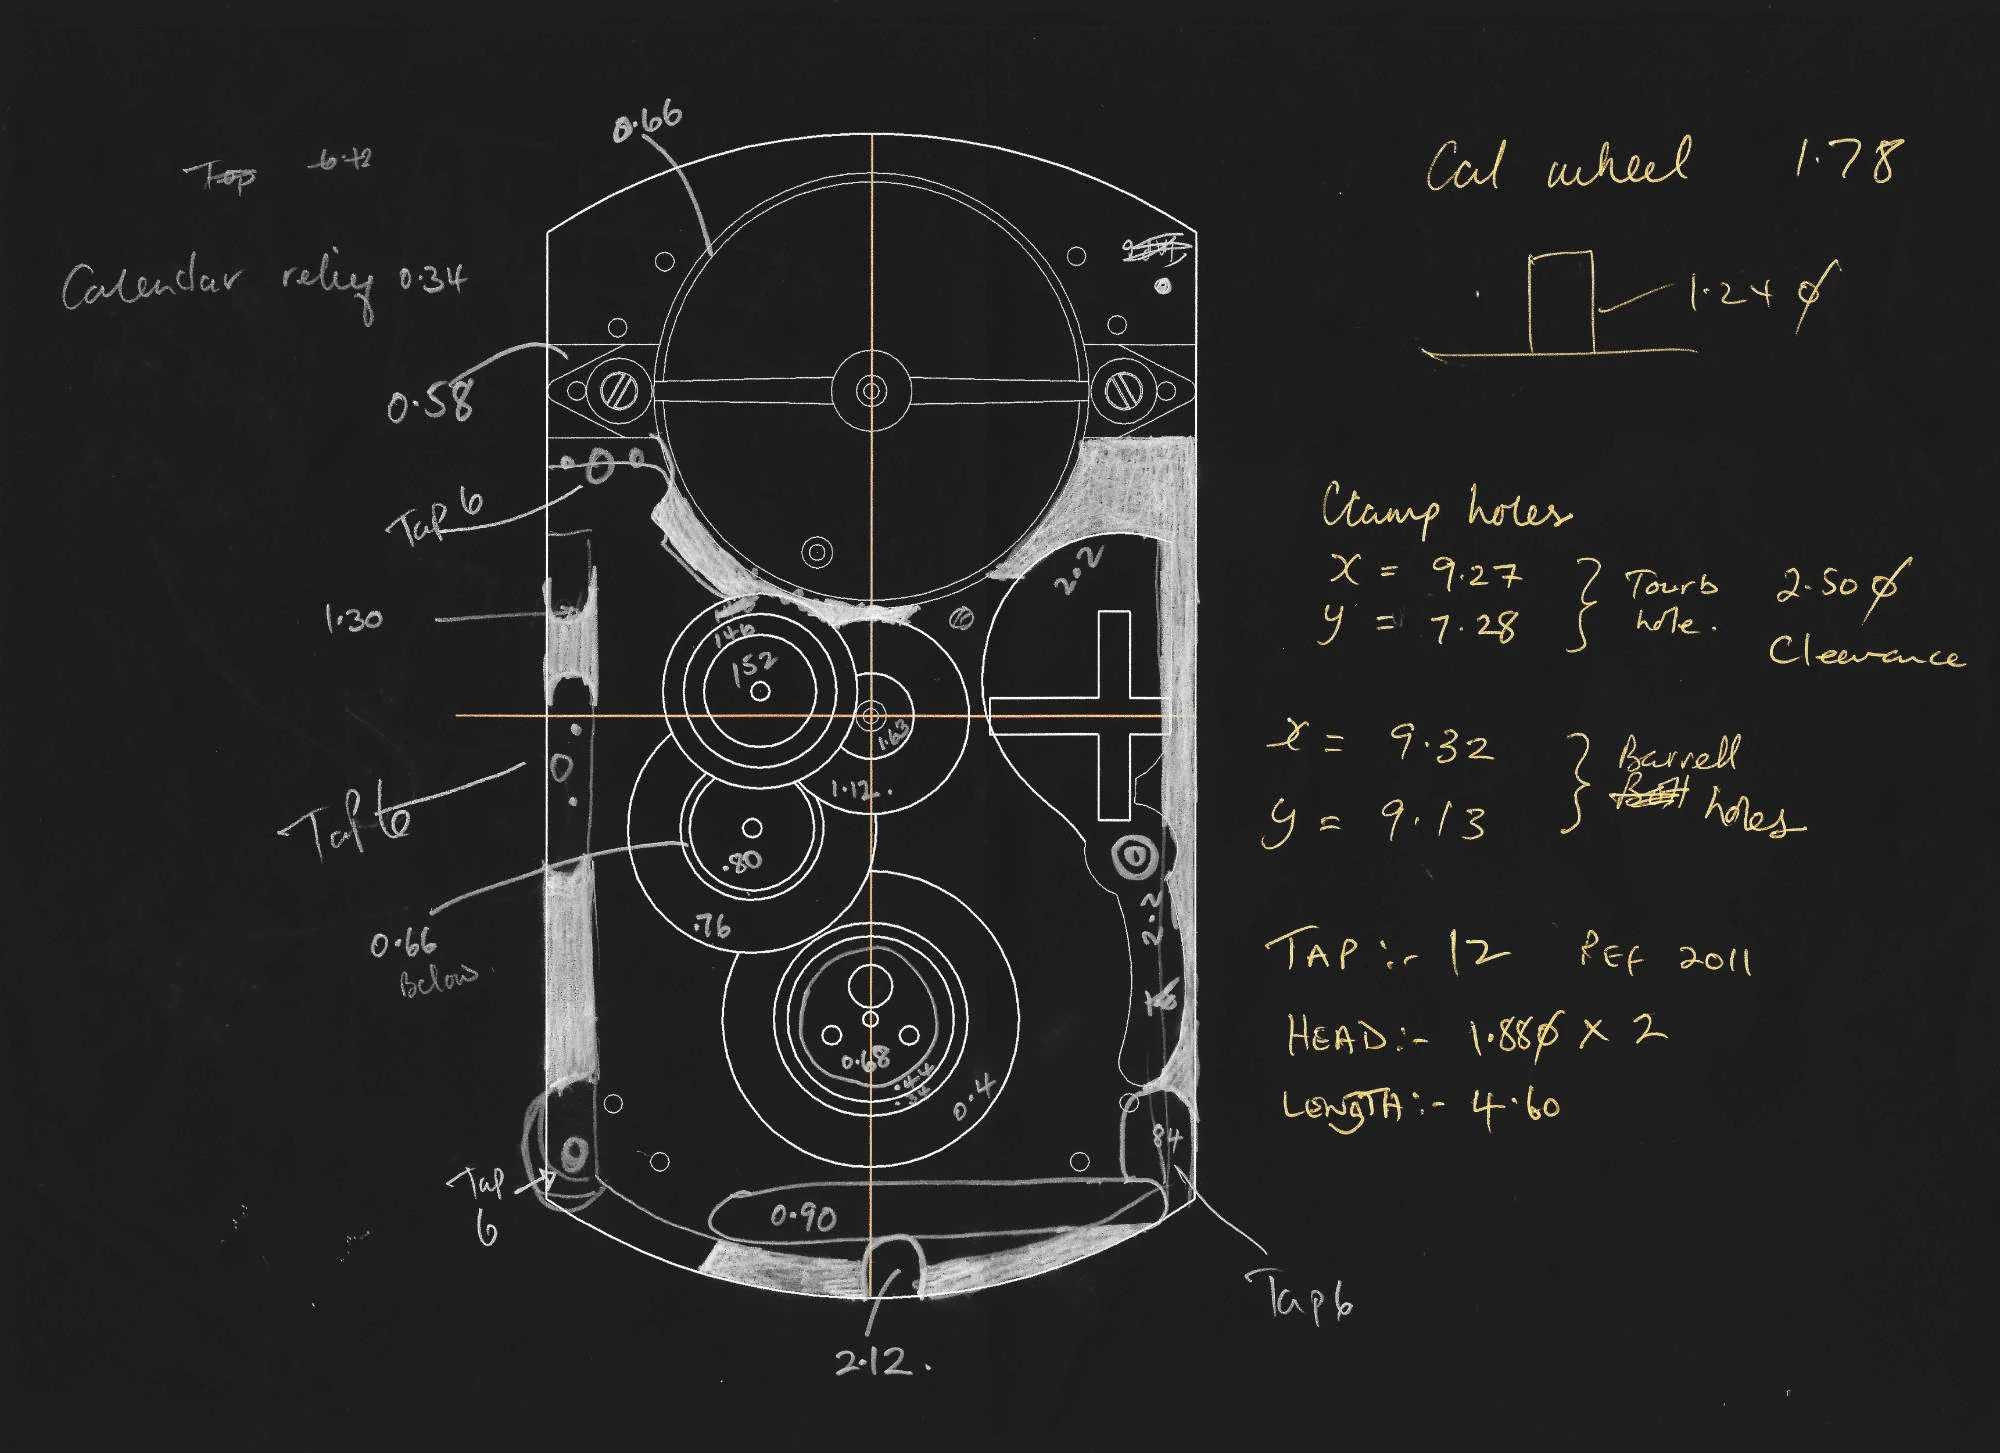 0.66
Calendar relief 0.34
0.58
Tap 6
1.30
Tap 6
0.66
Below
Tap
6
2.2
1.46
1.52
1.63
1.12.
.80
.76
2.2
0.68
.44
.34
0.4
84
0.90
2.12.
Tap 6
Cal wheel 1.78
1.24 ϕ
Clamp holes
x = 9.27
y = 7.28
Tourb
hole.
2.50 ϕ
Clearance
x = 9.32
y = 9.13
Barrell
holes
TAP :- 12 REF 2011
HEAD :- 1.88ϕ x 2
LENGTH :- 4.60